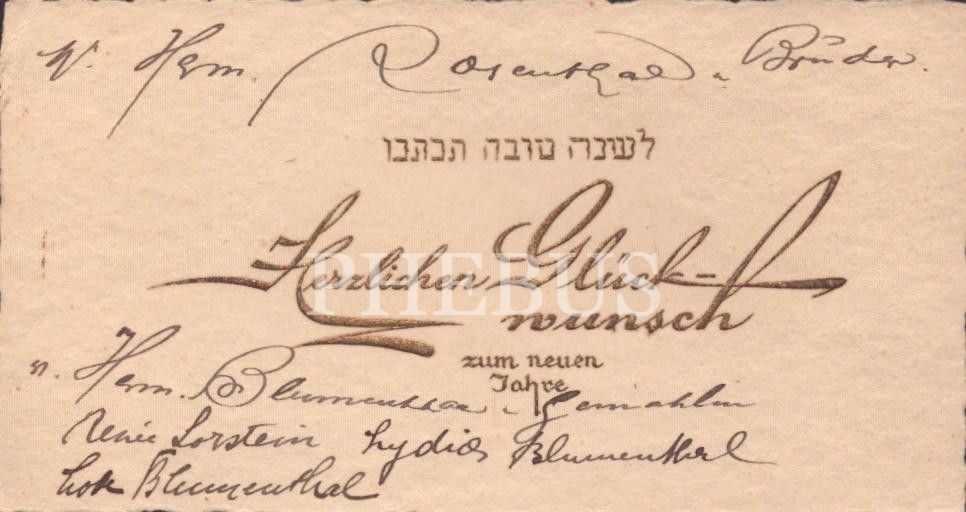 Herrn. Rosenthal u Brüder.
לשנה טובה תכתבו
Herzlichen Glück-
wunsch
PHEBUS
zum neuen
Jahre
Herrn. Blumenthal u Gemahlin
Lorstein Lydia Blumenthal
Blumenthal